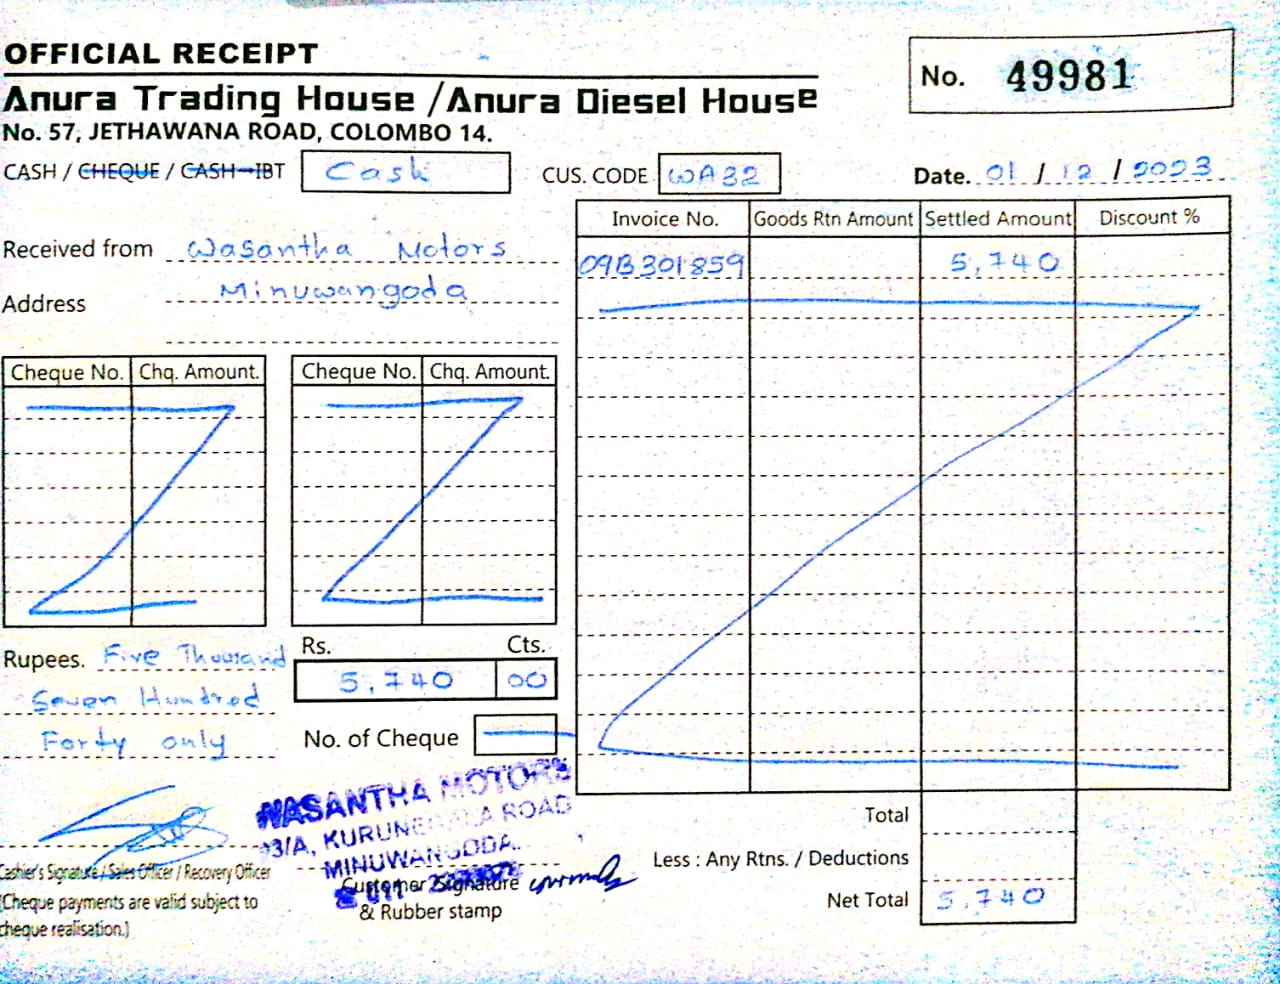 OFFICIAL RECEIPT
No. 49981
Anura Trading House / Anura Diesel House
No. 57, JETHAWANA ROAD, COLOMBO 14.
CASH / CHEQUE / CASH IBT Cash CUS. CODE WA32 Date. 01 / 12 / 2023
Received from Wasantha Motors
Address Minuwangoda
Invoice No. Goods Rtn Amount Settled Amount Discount %
09B301859 5,740
Cheque No. Chq. Amount. Cheque No. Chq. Amount.
Rupees. Five Thousand
Seven Hundred
Forty only
Rs. Cts.
5,740 00
No. of Cheque
WASANTHA MOTORS
3/A, KURUNEGALA ROAD
MINUWANGODA.
Cashier's Signature / Sales Officer / Recovery Officer
(Cheque payments are valid subject to
cheque realisation.)
Customer Signature
& Rubber stamp
Total
Less : Any Rtns. / Deductions
Net Total 5,740